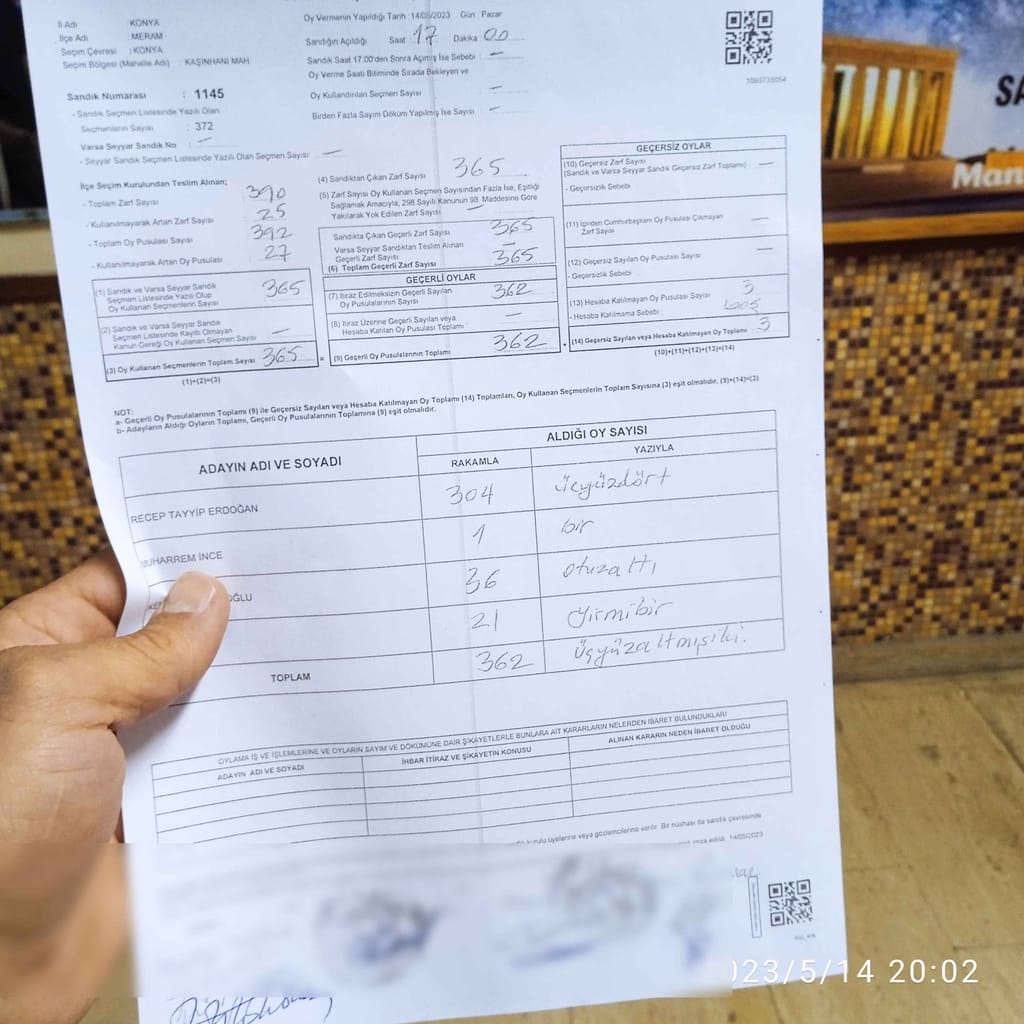 İl Adı : KONYA
İlçe Adı : MERAM
Seçim Çevresi : KONYA
Seçim Bölgesi (Mahalle Adı) : KAŞINHANI MAH.
Sandık Numarası : 1145
- Sandık Seçmen Listesinde Yazılı Olan
Seçmenlerin Sayısı : 372
Varsa Seyyar Sandık No : —
- Seyyar Sandık Seçmen Listesinde Yazılı Olan Seçmen Sayısı : —
Oy Vermenin Yapıldığı Tarih :14/05/2023 Gün : Pazar
Sandığın Açıldığı Saat : 17 Dakika : 00
Sandık Saat 17.00'den Sonra Açılmış İse Sebebi : —
Oy Verme Saati Bitiminde Sırada Bekleyen ve
Oy Kullandırılan Seçmen Sayısı : —
Birden Fazla Sayım Döküm Yapılmış İse Sayısı : —
1093735054
İlçe Seçim Kurulundan Teslim Alınan;
- Toplam Zarf Sayısı 390
- Kullanılmayarak Artan Zarf Sayısı 25
- Toplam Oy Pusulası Sayısı 392
- Kullanılmayarak Artan Oy Pusulası 27
(1) Sandık ve Varsa Seyyar Sandık
Seçmen Listesinde Yazılı Olup
Oy Kullanan Seçmenlerin Sayısı 365
(2) Sandık ve Varsa Seyyar Sandık
Seçmen Listesinde Kayıtlı Olmayan
Kanun Gereği Oy Kullanan Seçmen Sayısı —
(3) Oy Kullanan Seçmenlerin Toplam Sayısı 365
(1)+(2)=(3)
(4) Sandıktan Çıkan Zarf Sayısı 365
(5) Zarf Sayısı Oy Kullanan Seçmen Sayısından Fazla İse, Eşitliği
Sağlamak Amacıyla, 298 Sayılı Kanunun 98. Maddesine Göre
Yakılarak Yok Edilen Zarf Sayısı —
Sandıkta Çıkan Geçerli Zarf Sayısı 365
Varsa Seyyar Sandıktan Teslim Alınan
Geçerli Zarf Sayısı —
(6) Toplam Geçerli Zarf Sayısı 365
GEÇERLİ OYLAR
(7) İtiraz Edilmeksizin Geçerli Sayılan
Oy Pusulalarının Sayısı 362
(8) İtiraz Üzerine Geçerli Sayılan veya
Hesaba Katılan Oy Pusulası Toplamı —
(9) Geçerli Oy Pusulalarının Toplamı 362
GEÇERSİZ OYLAR
(10) Geçersiz Zarf Sayısı
(Sandık ve Varsa Seyyar Sandık Geçersiz Zarf Toplamı) —
- Geçersizlik Sebebi
(11) İçinden Cumhurbaşkanı Oy Pusulası Çıkmayan
Zarf Sayısı —
(12) Geçersiz Oy Pusulası Sayısı —
- Geçersizlik Sebebi
(13) Hesaba Katılmayan Oy Pusulası Sayısı 3
- Hesaba Katılmama Sebebi boş
(14) Geçersiz Sayılan veya Hesaba Katılmayan Oy Toplamı 3
(10)+(11)+(12)+(13)=(14)
NOT:
a- Geçerli Oy Pusulalarının Toplamı (9) ile Geçersiz Sayılan veya Hesaba Katılmayan Oy Toplamı (14) Toplamları, Oy Kullanan Seçmenlerin Toplam Sayısına (3) eşit olmalıdır. (9)+(14)=(3)
b- Adayların Aldığı Oyların Toplamı, Geçerli Oy Pusulalarının Toplamına (9) eşit olmalıdır.
ADAYIN ADI VE SOYADI ALDIĞI OY SAYISI
RAKAMLA YAZIYLA
RECEP TAYYİP ERDOĞAN 304 üçyüzdört
MUHARREM İNCE 1 bir
OĞLU 36 otuzaltı
21 yirmibir
TOPLAM 362 üçyüzaltmışiki.
OYLAMA İŞ VE İŞLEMLERİNE VE OYLARIN SAYIM VE DÖKÜMÜNE DAİR ŞİKAYETLERLE BUNLARA AİT KARARLARIN NELERDEN İBARET BULUNDUKLARI
ADAYIN ADI VE SOYADI İHBAR İTİRAZ VE ŞİKAYETİN KONUSU ALINAN KARARIN NEDEN İBARET OLDUĞU
kurulu üyelerine veya gözlemcilerine verilir. Bir nüshası da sandık çevresinde
edildi. 14/05/2023
SA
Man
023/5/14 20:02